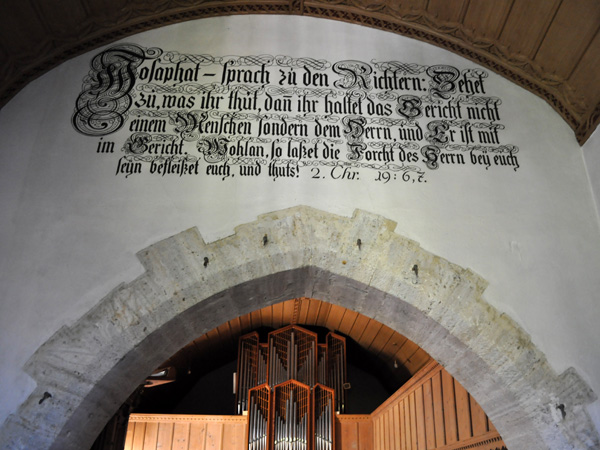 Josaphat – sprach zů den Richtern: Sehet
zů, was ihr thůt, dañ ihr haltet das Gericht nicht
einem Menschen sondern dem Herrn, und Er ist mit
im Gericht. Wohlan, so laßet die Forcht des Herrn beÿ euch
seÿn befleißet euch, und thuts! 2. Chr. 19:6,7.